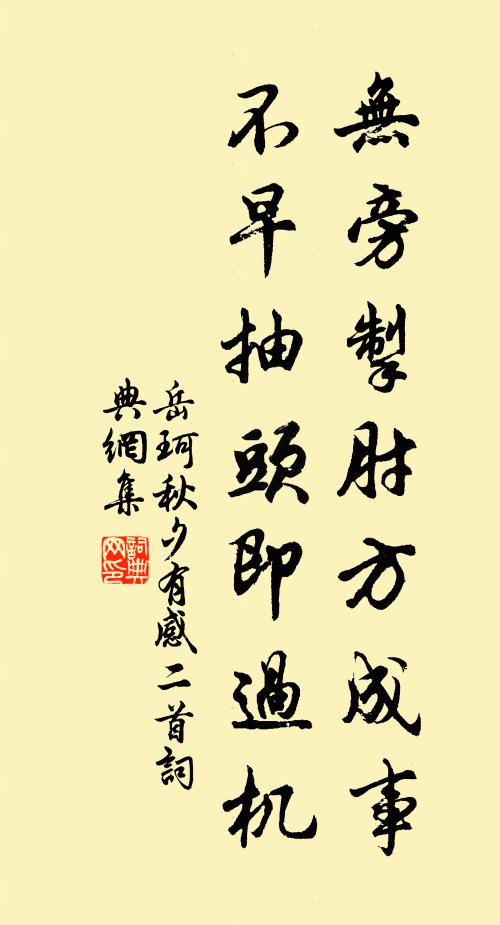 無旁掣肘方成事
不早抽頭即過机
岳珂秋夕有感二首詞
典網集
詞典
网印